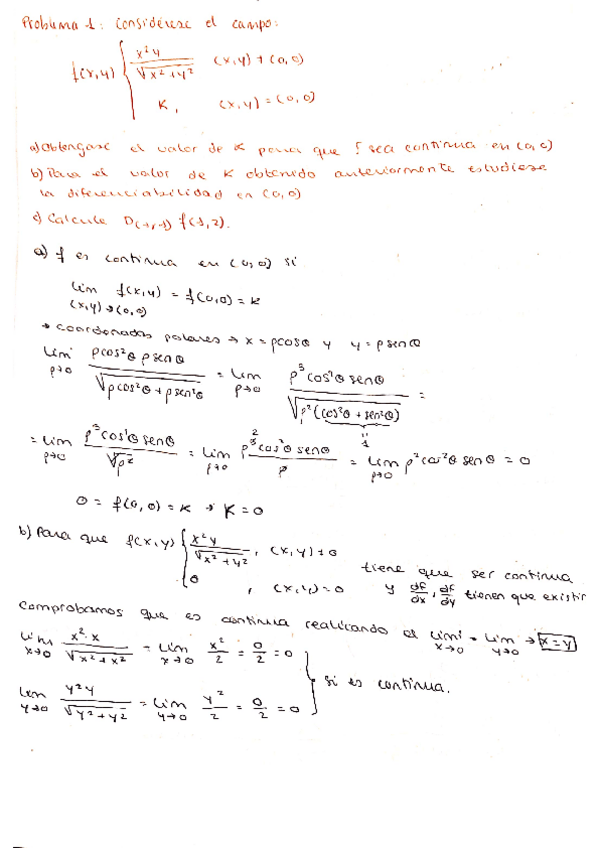 Problema 1: Considérese el campo:
f(x,y) { x²y / √(x²+y²) (x,y) ≠ (0,0)
K, (x,y) = (0,0)
a) Obténgase el valor de K para que f sea continua en (0,0)
b) Para el valor de K obtenido anteriormente estudiese
la diferenciabilidad en (0,0)
c) Calcule D(-1,-1) f(1,2).
a) f es continua en (0,0) si
lim f(x,y) = f(0,0) = K
(x,y)→(0,0)
→ coordenadas polares → x = ρcosθ y y = ρsenθ
lim ρ→0 ρcos²θ ρsenθ / √(ρcos²θ + ρsen²θ) = lim ρ→0 ρ³cos²θ senθ / √(ρ²(cos²θ + sen²θ)) =
1
= lim ρ→0 ρ³cos²θ senθ / √ρ² = lim ρ→0 ρ³ ² cos²θ senθ / ρ = lim ρ→0 ρ²cos²θ senθ = 0
0 = f(0,0) = K → K = 0
b) Para que f(x,y) { x²y / √(x²+y²), (x,y) ≠ 0
0, (x,y) = 0
tiene que ser continua
y df/dx, df/dy tienen que existir
Comprobamos que es continua realizando el lim x→0 = lim y→0 → x=y
lim x→0 x²·x / √(x²+x²) = lim x→0 x²/2 = 0/2 = 0
lim y→0 y²y / √(y²+y²) = lim y→0 y²/2 = 0/2 = 0
} si es continua.